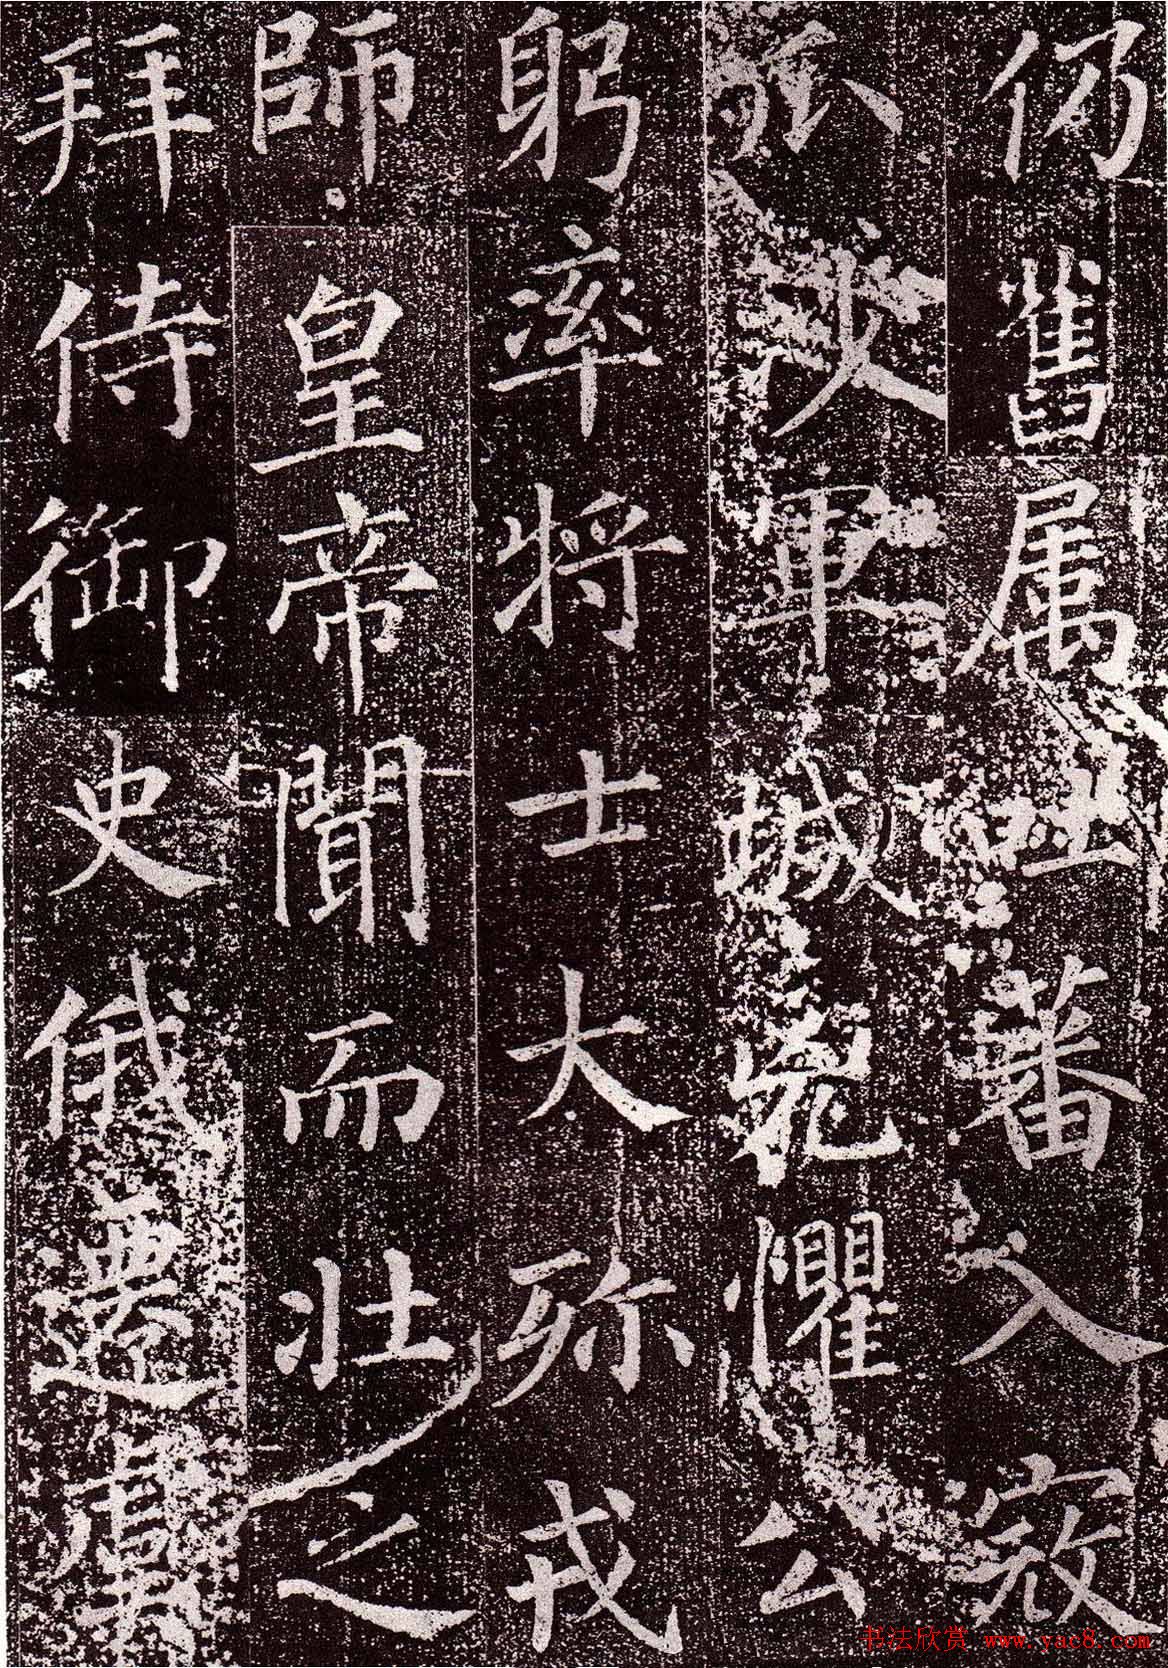 仍舊属吐蕃入寇
軍城兇懼公
躬率將士大殄戎
師皇帝聞而壯之
拜侍御史俄遷虞
书法欣赏 www.yac8.com